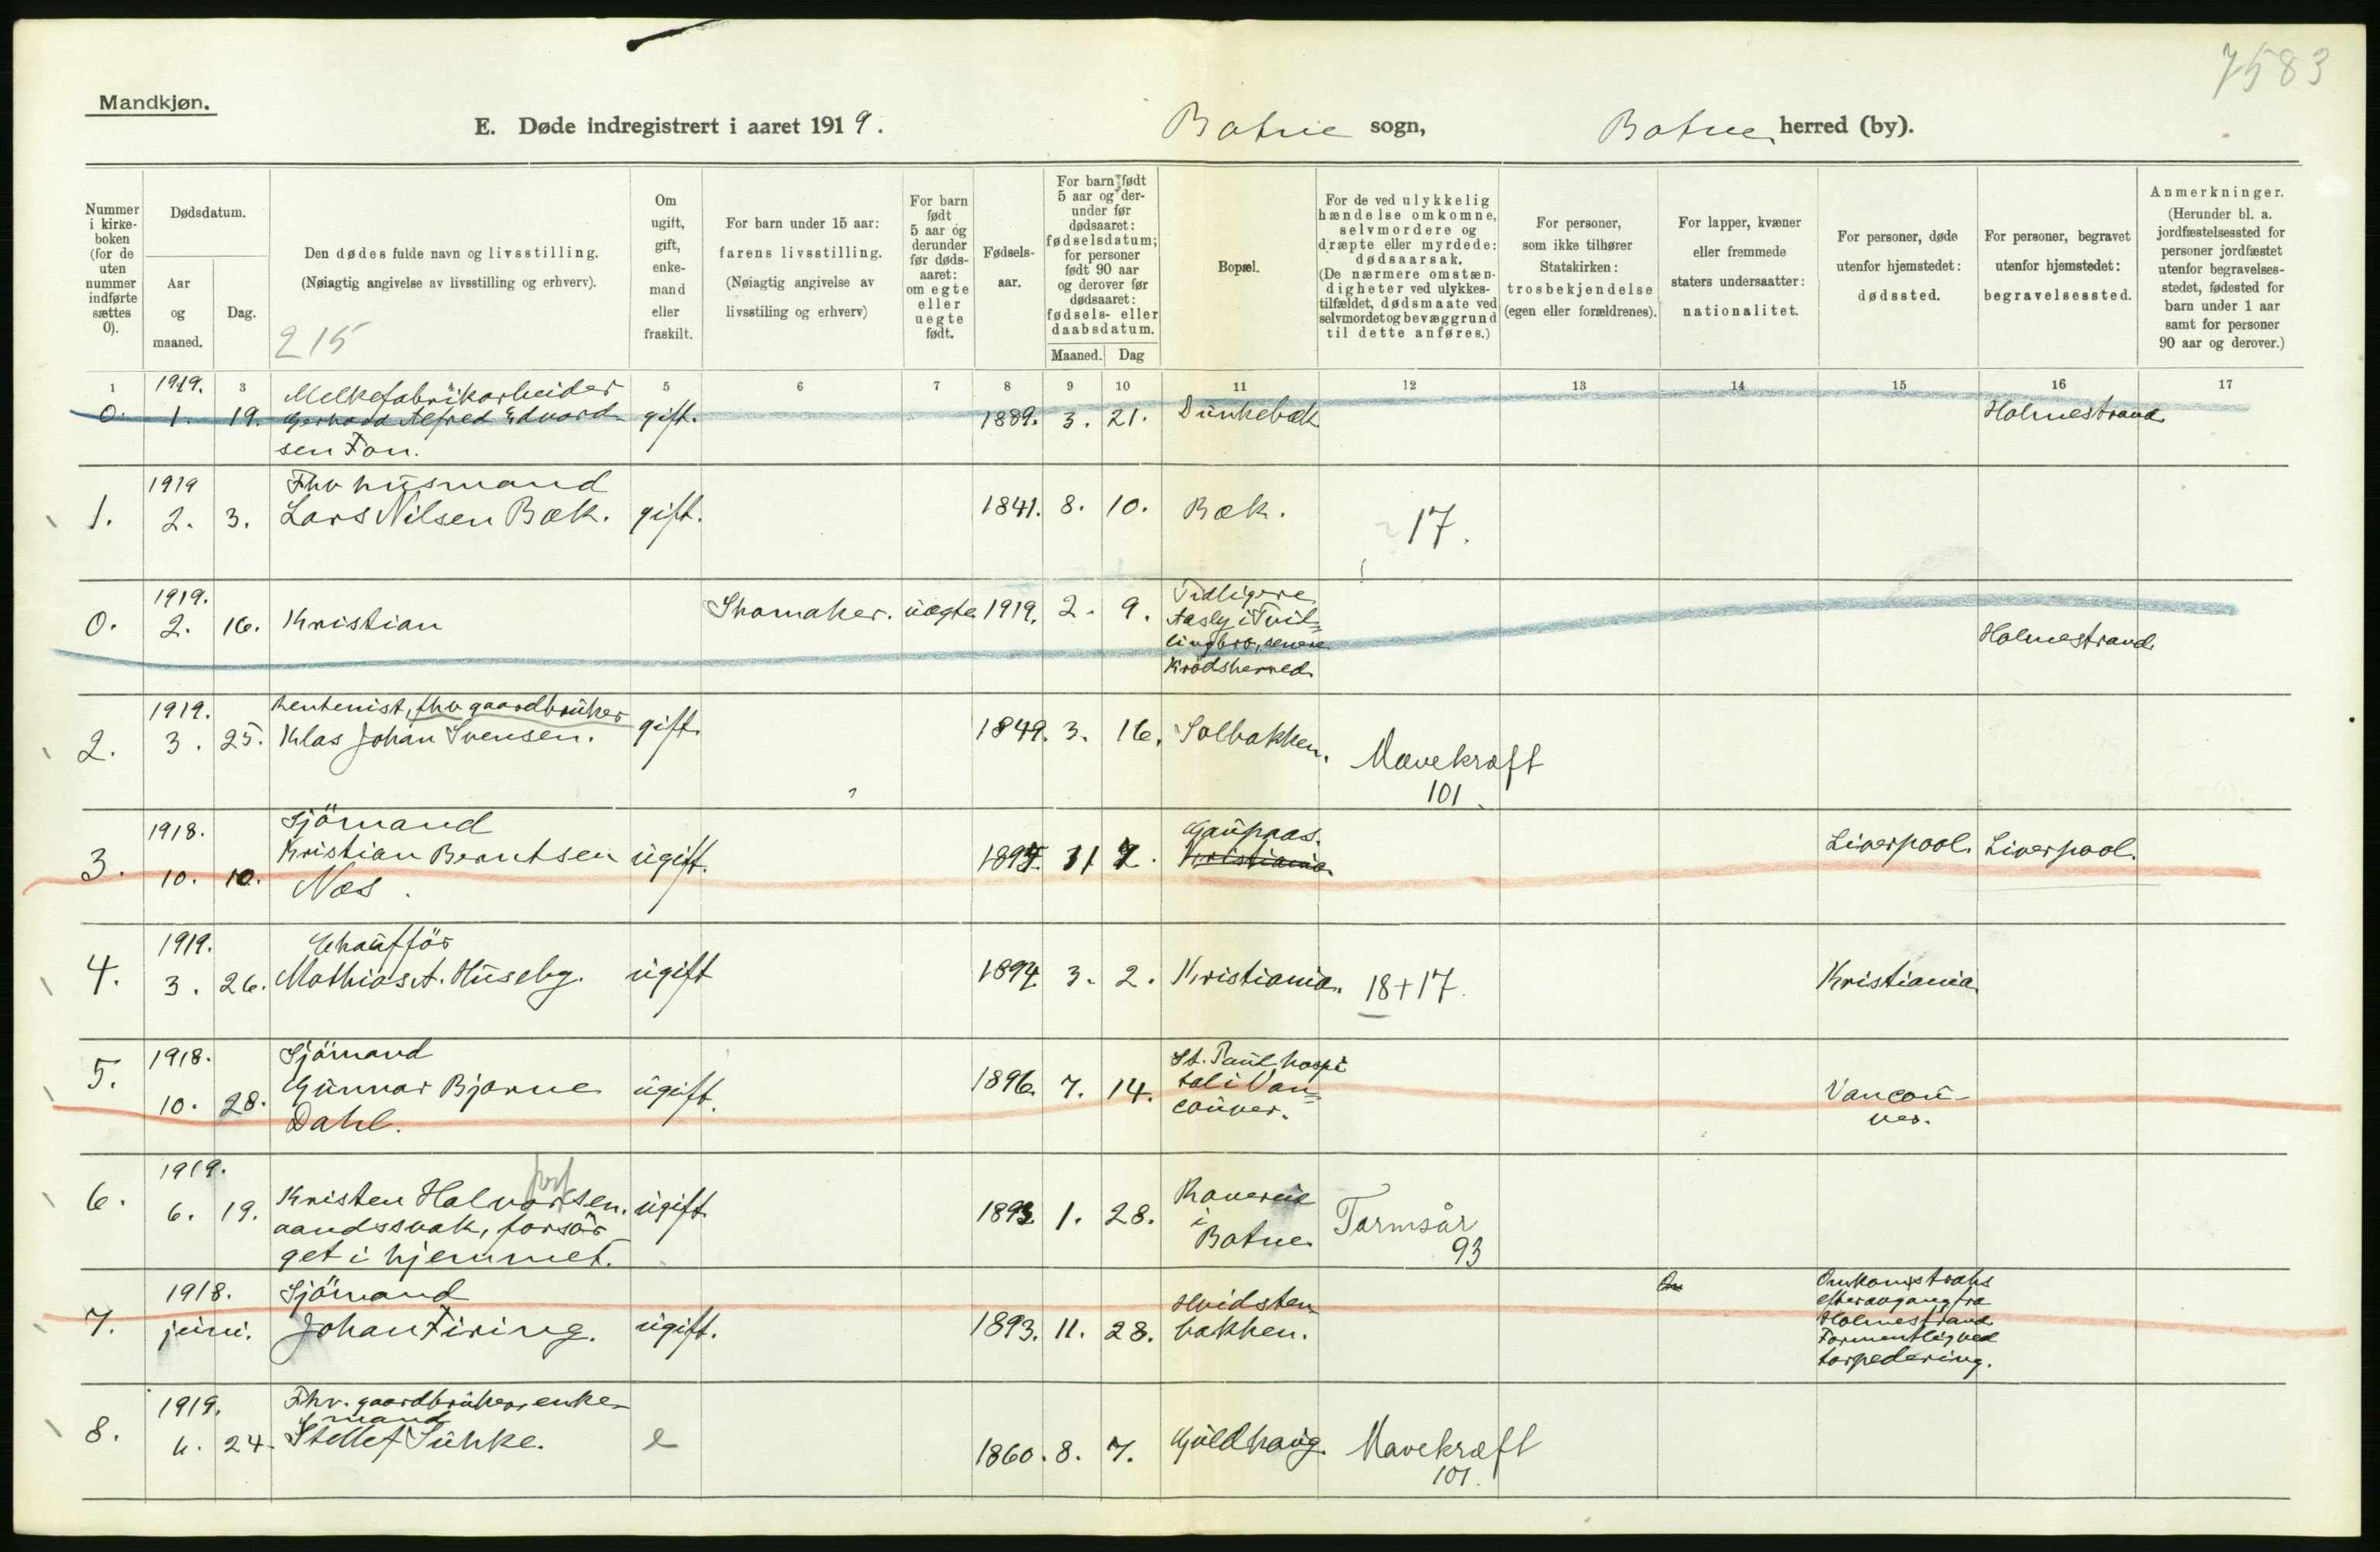 7583
Mandkjøn.
E. Døde indregistrert i aaret 1919. Botne sogn, Botne herred (by).
Nummer i kirkeboken (for de uten nummer indførte sættes 0).
Dødsdatum.
Aar og maaned.
Dag.
Den dødes fulde navn og livsstilling.
(Nøiagtig angivelse av livsstilling og erhverv).
215
Om ugift, gift, enkemand eller fraskilt.
For barn under 15 aar: farens livsstilling.
(Nøiagtig angivelse av livsstiling og erhverv)
For barn født 5 aar og derunder før dødsaaret: om egte eller uegte født.
Fødselsaar.
For barn født 5 aar og derunder før dødsaaret: fødselsdatum; for personer født 90 aar og derover før dødsaaret: fødsels- eller daabsdatum.
Maaned. Dag
Bopæl.
For de ved ulykkelig hændelse omkomne, selvmordere og dræpte eller myrdede: dødsaarsak.
(De nærmere omstændigheter ved ulykkestilfældet, dødsmaate ved selvmordet og bevæggrund til dette anføres.)
For personer, som ikke tilhører Statskirken: trosbekjendelse (egen eller forældrenes).
For lapper, kvæner eller fremmede staters undersaatter: nationalitet.
For personer, døde utenfor hjemstedet: dødssted.
For personer, begravet utenfor hjemstedet: begravelsessted.
Anmerkninger.
(Herunder bl. a. jordfæstelsessted for personer jordfæstet utenfor begravelsesstedet, fødested for barn under 1 aar samt for personer 90 aar og derover.)
1 3 5 6 7 8 9 10 11 12 13 14 15 16 17
1919. Melkefabrikarbeider
0. 1. 19. Gerhard Alfred Edvard- gift. 1889. 3. 21. Dunkebæk Holmestrand
sen Fon.
1919 Fhv husmand
1. 2. 3. Lars Nilsen Bæk. gift. 1841. 8. 10. Bæk. 17.
1919. Tidligere
0. 2. 16. Kristian Skomaker. uægte 1919. 2. 9. Aasly i Tvil=
lingbro, senere Holmestrand
Krødsherred
1919. Rentenist, fhv gaardbruker
2. 3. 25. Klas Johan Svensen. gift. 1849. 3. 16. Solbakken. Mavekræft
101.
1918. Sjömand Gaupaas.
3. 10. 10. Kristian Berntsen ugift. 1897. 11 7. Kristiania Liverpool. Liverpool.
Næs.
1919. Chaufför
4. 3. 26. Mathias A. Huseby. ugift 1894. 3. 2. Kristiania. 18+17. Kristiania
1918. Sjömand St. Paul hospi
5. 10. 28. Gunnar Bjarne ugift. 1896. 7. 14. tal i Van= Vancou-
Dahl. couver. ver.
1919.
6. 6. 19. Kristen Halvorsen. ugift. 1893. 1. 28. Raverud Tarmsår
aandssvak, forsör- i 93
get i hjemmet. Botne
1918. Sjömand Hvidsten- Omkom straks
7. juni. Johan Firing. ugift. 1893. 11. 28. bakken. efter avgang fra
Holmestrand.
Formentlig ved
torpedering.
1919. Fhv. gaardbruker, enke-
mand
8. 6. 24. Stellef Suhke. e 1860. 8. 7. Guldhaug. Mavekræft
101.